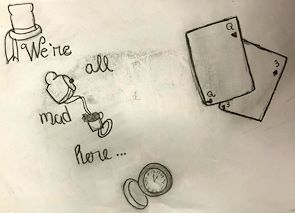 We're
all
mad
here...
Q
Q
3
3